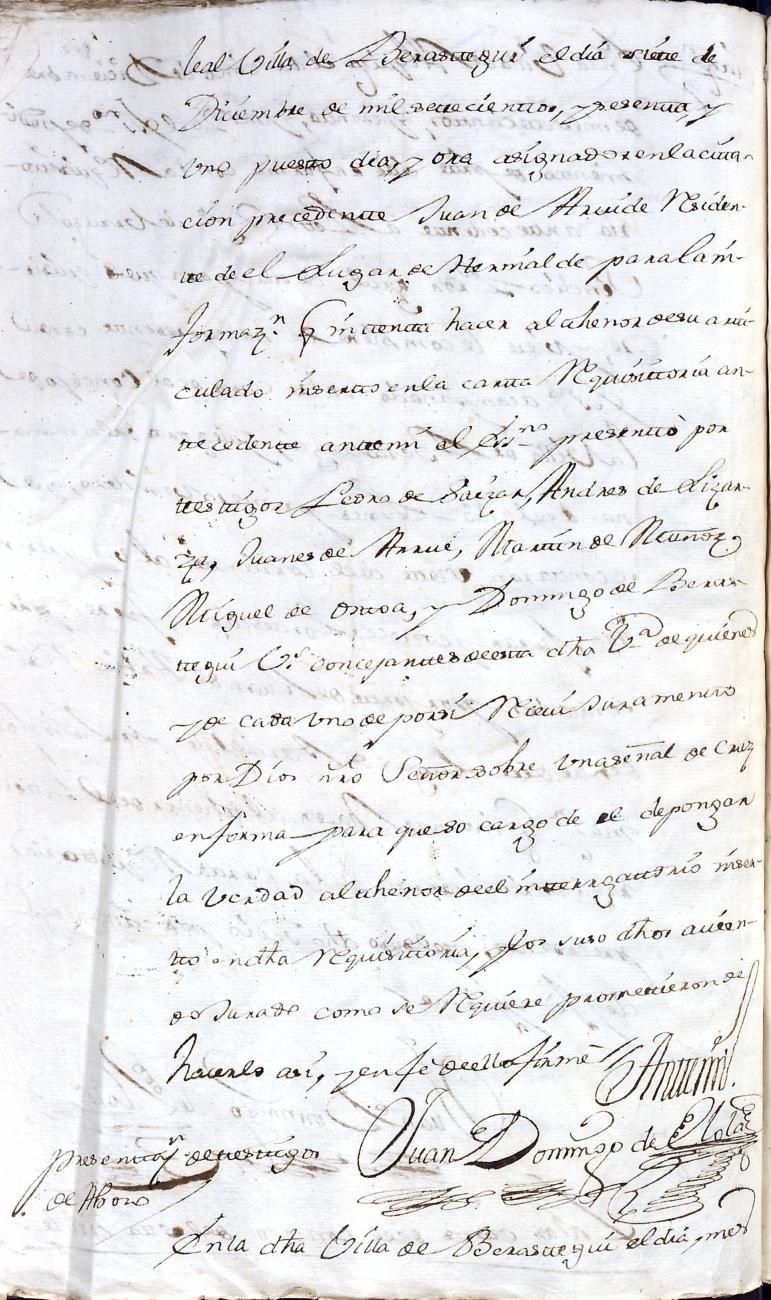 leal Villa de Berastegui el dia siete de
Diziembre de mil settecientos, y sesenta, y
uno puesto dia, y ora asignados en la cita-
cion precedente Juan de Arrue Residen-
te de el Lugar de Hernialde para la in-
formaz.n q intenta hacer al thenor de su arti-
culado inserto en la carta Requisitoria an-
tecedente ante mi el Ess.no presentó por
testigos Pedro de Saizar, Andres de Lizar-
za, Juanes de Arrue, Martin de
Miguel de Ontoa, y Domingo de Beras-
tegui V.s concejantes de esta dha V.a de quienes
y de cada uno de por si Receui Juramento
por Dios nro Señor sobre una señal de Cruz
en forma para que so cargo de el depongan
la verdad al thenor de el interrogatorio inser-
to en dha Requisitoria, y los suso dhos avien-
do Jurado como se Requiere prometieron de
hacerlo asi, y en fe de ello firmé
Ante mi
Juan Domingo de
Presentaz.n de testigos
de Abono
En la dha Villa de Berastegui el dia, mes